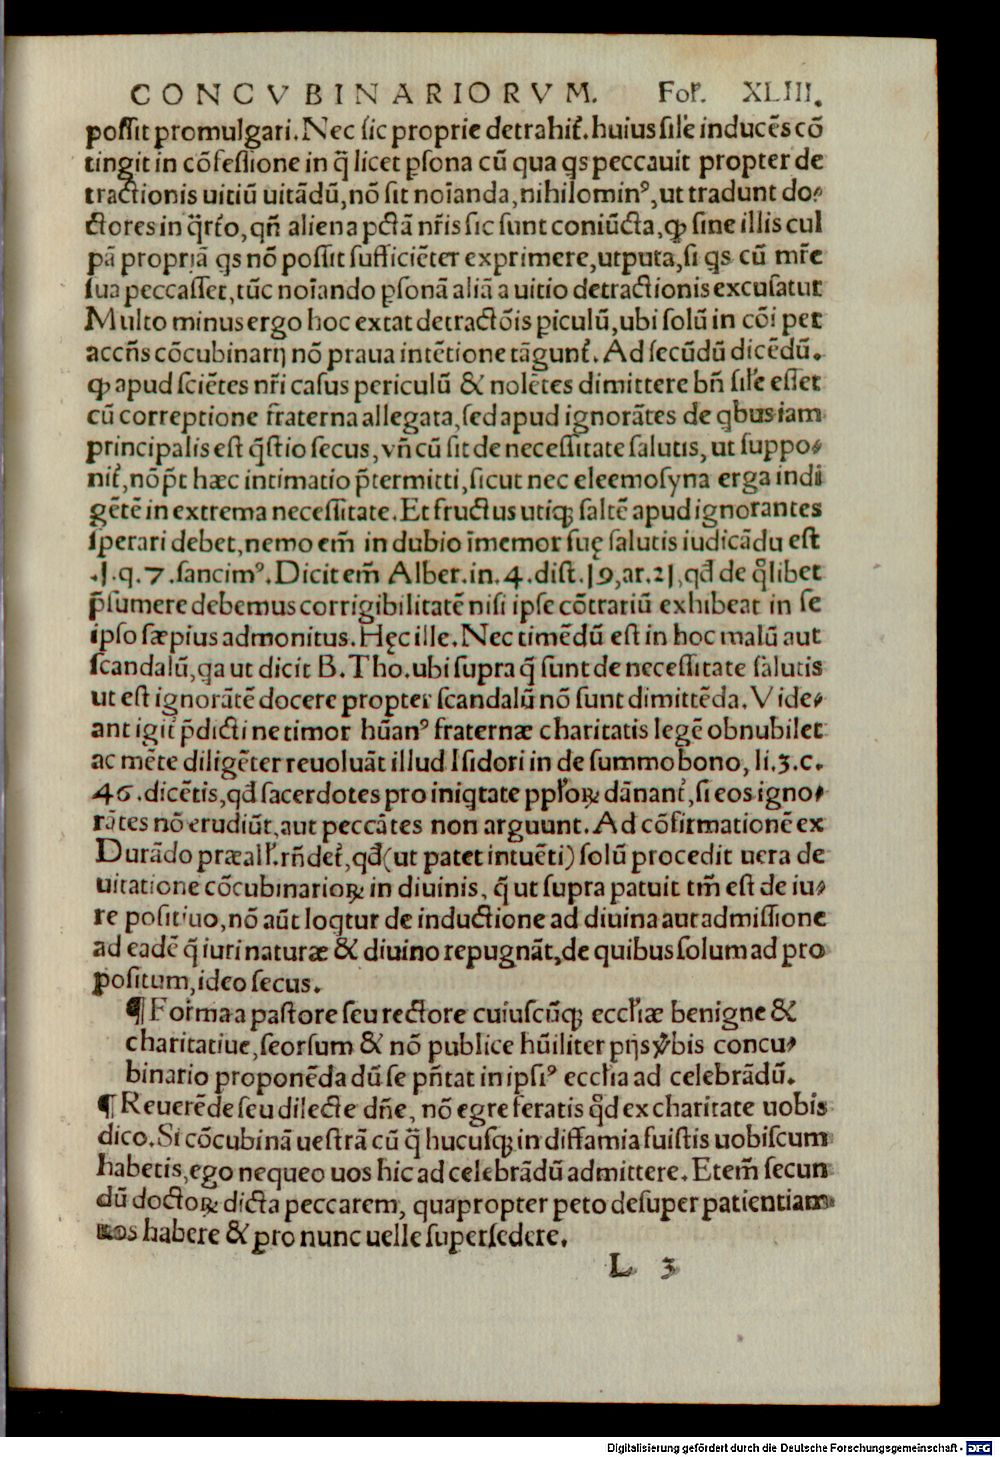 CONCVBINARIORVM. Fol. XLIII.
possit promulgari. Nec sic proprie detrahit̃. huius sil'e inducẽs cõ
tingit in cõfessione in q̃ licet ꝑsona cũ qua qs peccauit propter de
tractionis uitiũ uitãdũ, nõ sit noĩanda, nihilominꝰ, ut tradunt do⸗
ctores in q̃rto, qñ aliena pctã nr̃is sic sunt coniũcta, ꝙ sine illis cul
pã propriã qs nõ possit sufficiẽter exprimere, utputa, si qs cũ mr̃e
sua peccasset, tũc noĩando ꝑsonã aliã a uitio detractionis excusatur
Multo minus ergo hoc extat detractõis piculũ, ubi solũ in cõi per
accñs cõcubinarij nõ praua intẽtione tãgunt̃. Ad secũdũ dicẽdũ.
ꝙ apud sciẽtes nr̃i casus periculũ & nolẽtes dimittere bñ sil'e esset
cũ correptione fraterna allegata, sed apud ignorãtes de qbus iam
principalis est q̃stio secus, vñ cũ sit de necessitate salutis, ut suppo⸗
nit̃, nõ p̃t hæc intimatio p̃termitti, sicut nec eleemosyna erga indi
gẽtẽ in extrema necessitate. Et fructus utiqꝫ saltẽ apud ignorantes
sperari debet, nemo em̃ in dubio ĩmemor suę salutis iudicãdu est
.1.q.7.sancimꝰ. Dicit em̃ Alber. in.4.dist.19,ar.21,qđ de q̃libet
p̃sumere debemus corrigibilitatẽ nisi ipse cõtrariũ exhibeat in se
ipso sæpius admonitus. Hęc ille. Nec timẽdũ est in hoc malũ aut
scandalũ, qa ut dicit B. Tho. ubi supra q̃ sunt de necessitate salutis
ut est ignorãtẽ docere propter scandalũ nõ sunt dimittẽda. Vide⸗
ant igit̃ p̃dicti ne timor hũanꝰ fraternæ charitatis legẽ obnubilet
ac mẽte diligẽter reuoluãt illud Isidori in de summo bono, li.3.c.
46.dicẽtis, qđ sacerdotes pro iniqtate ppl'oꝝ dãnant̃, si eos igno⸗
rãtes nõ erudiũt, aut peccãtes non arguunt. Ad cõfirmationẽ ex
Durãdo præall'. rñdet̃, qđ (ut patet intuẽti) solũ procedit uera de
uitatione cõcubinarioꝝ in diuinis, q̃ ut supra patuit tm̃ est de iu⸗
re positiuo, nõ aũt loqtur de inductione ad diuina aut admissione
ad eadẽ q̃ iuri naturæ & diuino repugnãt, de quibus solum ad pro
positum, ideo secus.
¶ Forma a pastore seu rectore cuiuscũqꝫ eccl'iæ benigne &
charitatiue, seorsum & nõ publice hũiliter pñs ṽbis concu⸗
binario proponẽda dũ se pñtat in ipsiꝰ eccl'ia ad celebrãdũ.
¶ Reuerẽde seu dilecte dñe, nõ egre feratis q̃d ex charitate uobis
dico. Si cõcubinã uestrã cũ q̃ hucusqꝫ in diffamia fuistis uobiscum
habetis, ego nequeo uos hic ad celebrãdũ admittere. Etem̃ secun
dũ doctoꝝ dicta peccarem, quapropter peto desuper patientiam
uos habere & pro nunc uelle supersedere.
L 3
Digitalisierung gefördert durch die Deutsche Forschungsgemeinschaft - DFG